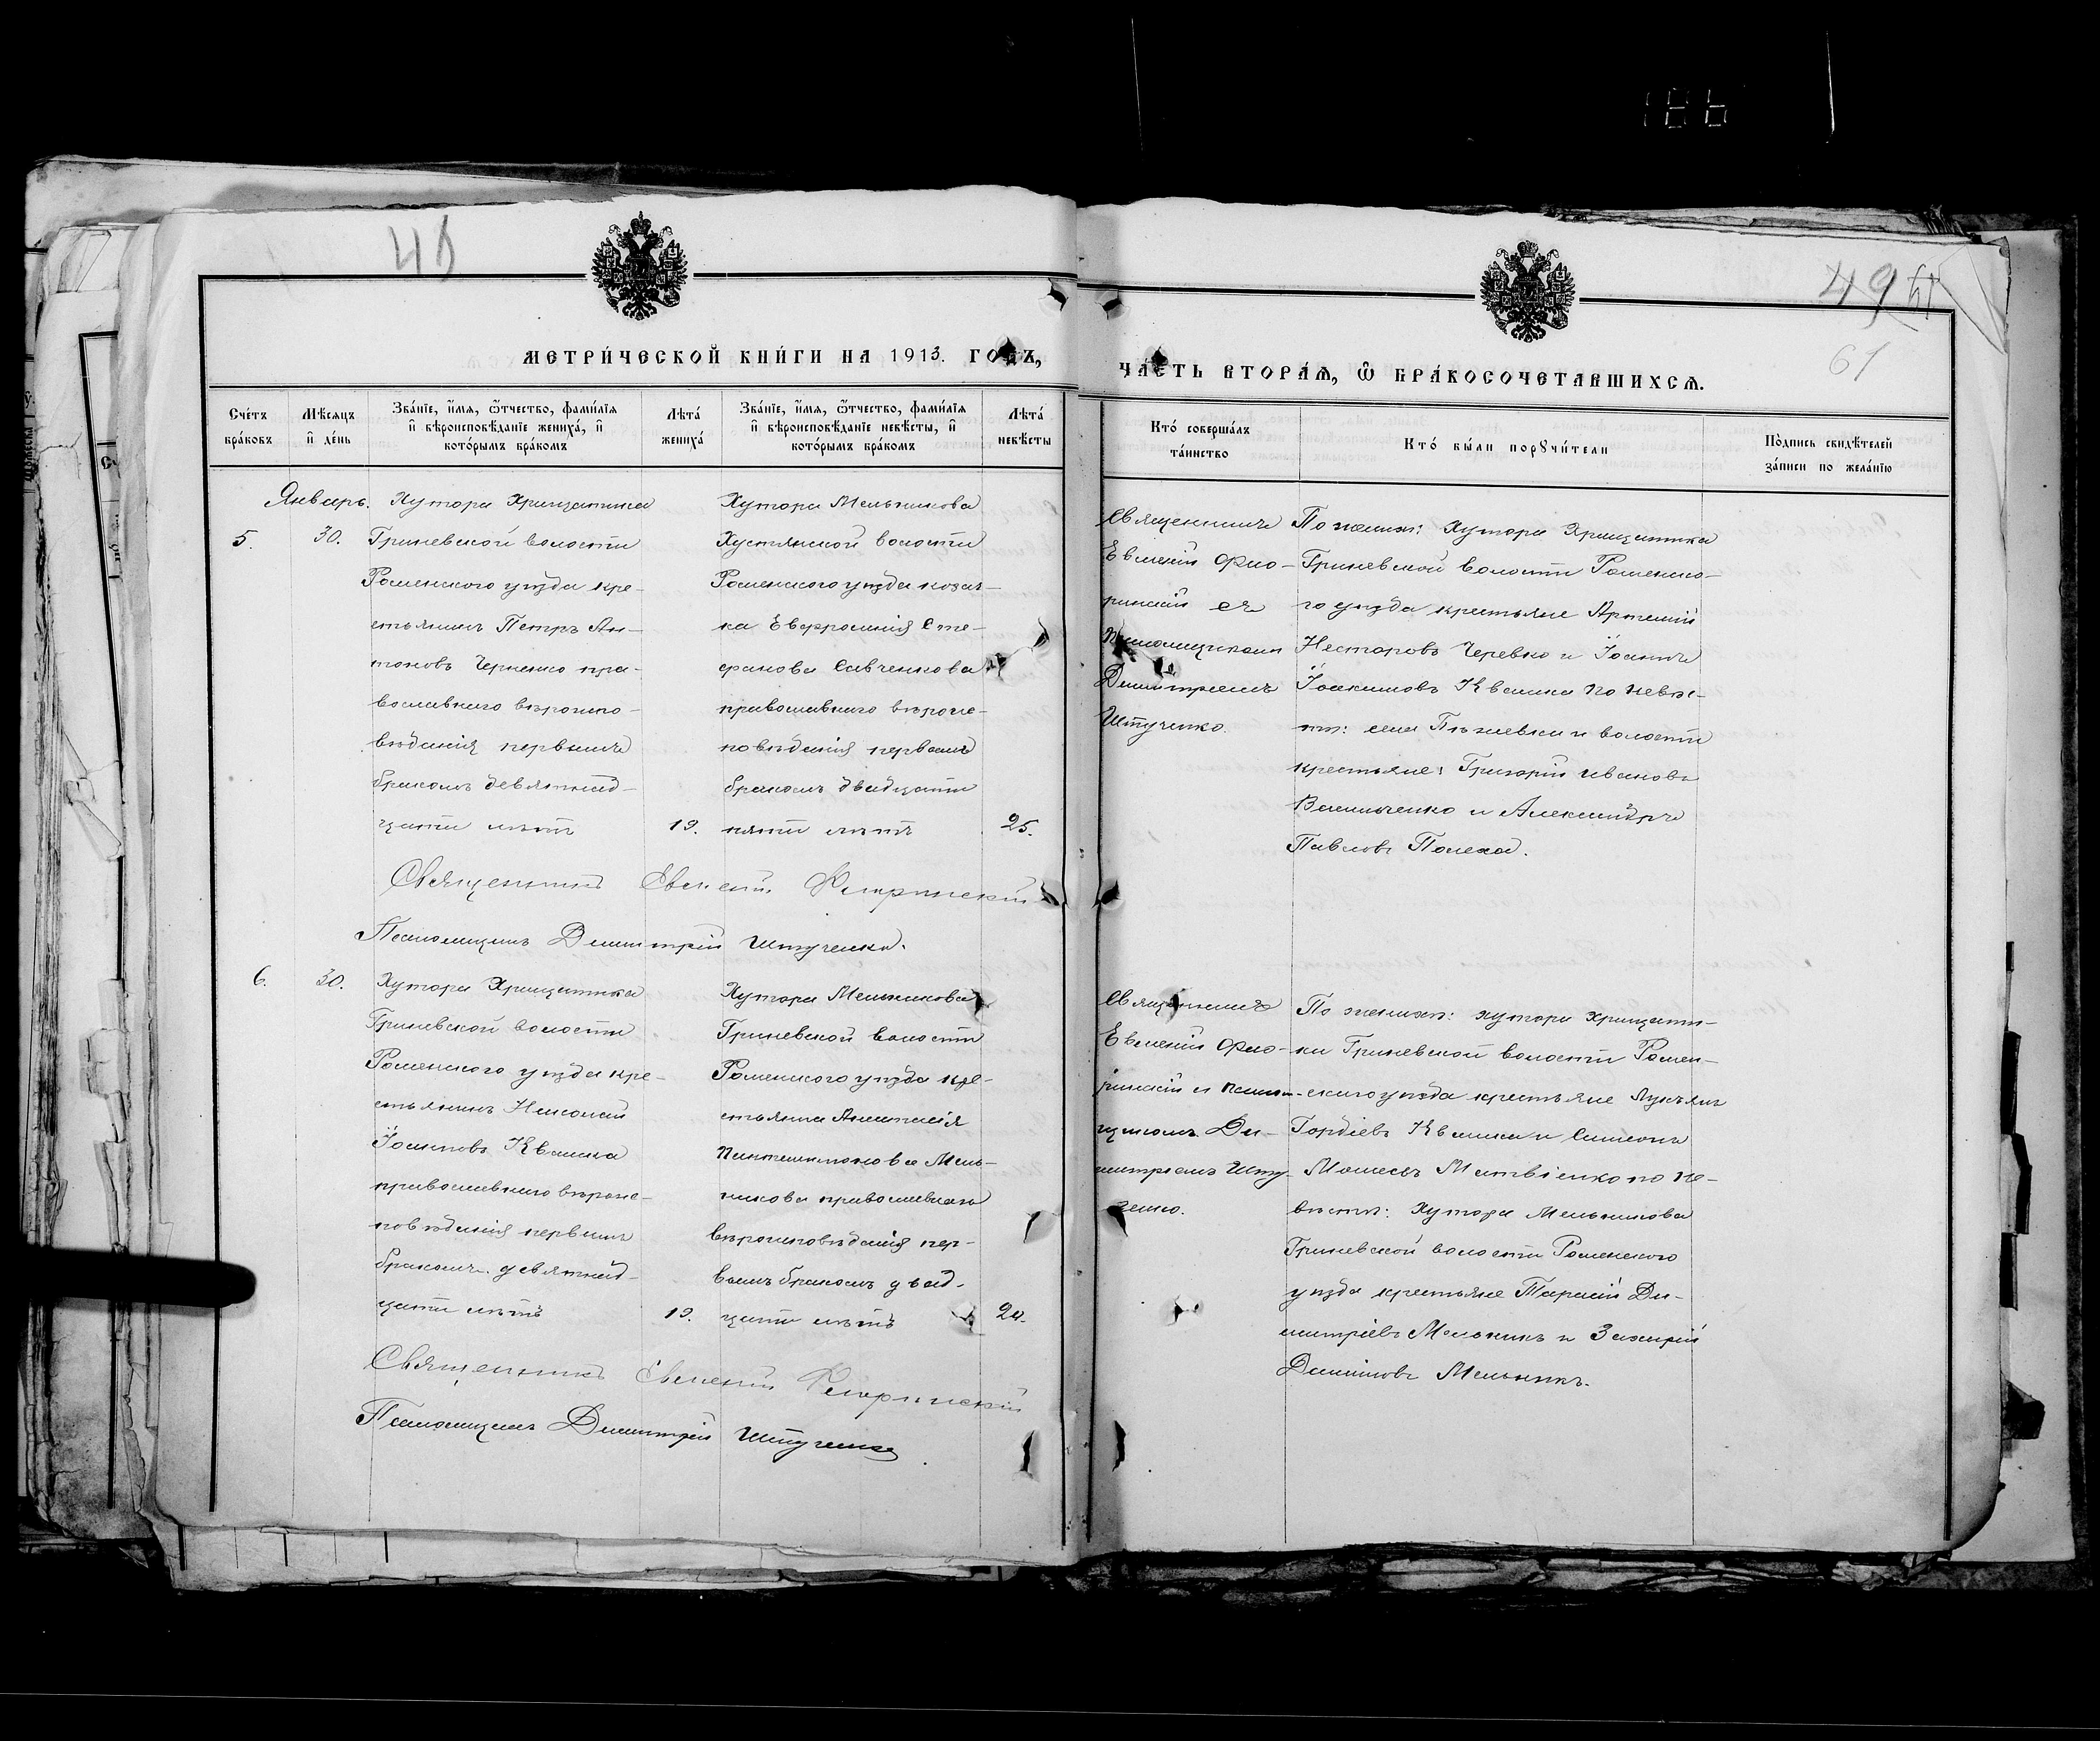 186
48
49
61
МЕТРИ́ЧЕСКОЙ КНИ́ГИ НА 1913. ГОДЪ,
ЧА́СТЬ ВТОРА́Ѧ, Ѽ БРА́КОСОЧЕТАВШИХСѦ.
Сче́тъ бра́ковъ
Мѣ́сяцъ и҆ де́нь
Зва́нїе, и҆́мя, ѻ҆́тчество, фами́лїя и҆ вѣроисповѣ́данїе жениха́, и҆ кото́рымъ бра́комъ
Лѣта́ жениха́
Зва́нїе, и҆́мя, ѻ҆́тчество, фами́лїя и҆ вѣроисповѣ́данїе невѣ́сты, и҆ кото́рымъ бра́комъ
Лѣта́ невѣ́сты
Кто́ соверша́лъ та́инство
Кто́ бы́ли порꙋчи́тели
По́дпись свидѣ́телей за́писи по жела́нїю
Январь.
5.
30.
Хутора Хрищатика
Гриневской волости
Роменского уѣзда кре-
стьянинъ Петръ Ан-
тоновъ Черненко пра-
вославнаго вѣроиспо-
вѣданія первымъ
бракомъ девятнад-
цати лѣтъ
19.
Хутора Мельникова
Хустянской волости
Роменского уѣзда козач-
ка Евфросинія Сте-
фанова Савченкова
православнаго вѣроис-
повѣданія первымъ
бракомъ двадцати
пяти лѣтъ
25.
Священникъ
Евгеній Фло-
ринскій съ
псаломщикомъ
Димитріемъ
Штученко.
По женихѣ: Хутора Хрищатика
Гриневской волости Роменско-
го уѣзда крестьяне Артемій
Несторовъ Черевко и Іоаннъ
Іоакимовъ Квашка по невѣ-
стѣ: села волости
крестьяне: Григорій Ивановъ
Васильченко и Александръ
Павловъ
Священникъ Евгеній Флоринскій
Псаломщикъ Димитрій Штученко.
6.
30.
Хутора Хрищатика
Гриневской волости
Роменского уѣзда кре-
стьянинъ Николай
Іосиповъ Квашка
православнаго вѣроис-
повѣданія первымъ
бракомъ девятнад-
цати лѣтъ
19.
Хутора Мельникова
Гриневской волости
Роменского уѣзда кре-
стьянка Анастасія
Пантелеимонова Мель-
никова православнаго
вѣроисповѣданія пер-
вымъ бракомъ двад-
цати лѣтъ
20.
Священникъ
Евгеній Фло-
ринскій и псалом-
щикомъ Ди-
митріемъ Шту-
ченко.
По женихѣ: хутора Хрищати-
ка Гриневской волости Ромен-
скаго уѣзда крестьяне Лукьянъ
Гордіевъ Квашка и Симеонъ
Моисеевъ Матвіенко по не-
вѣстѣ: Хутора Мельникова
Гриневской волости Роменского
уѣзда крестьяне Тарасій Ди-
митріевъ Мельникъ и Захарій
Мельникъ.
Священникъ Евгеній Флоринскій
Псаломщикъ Димитрій Штученко